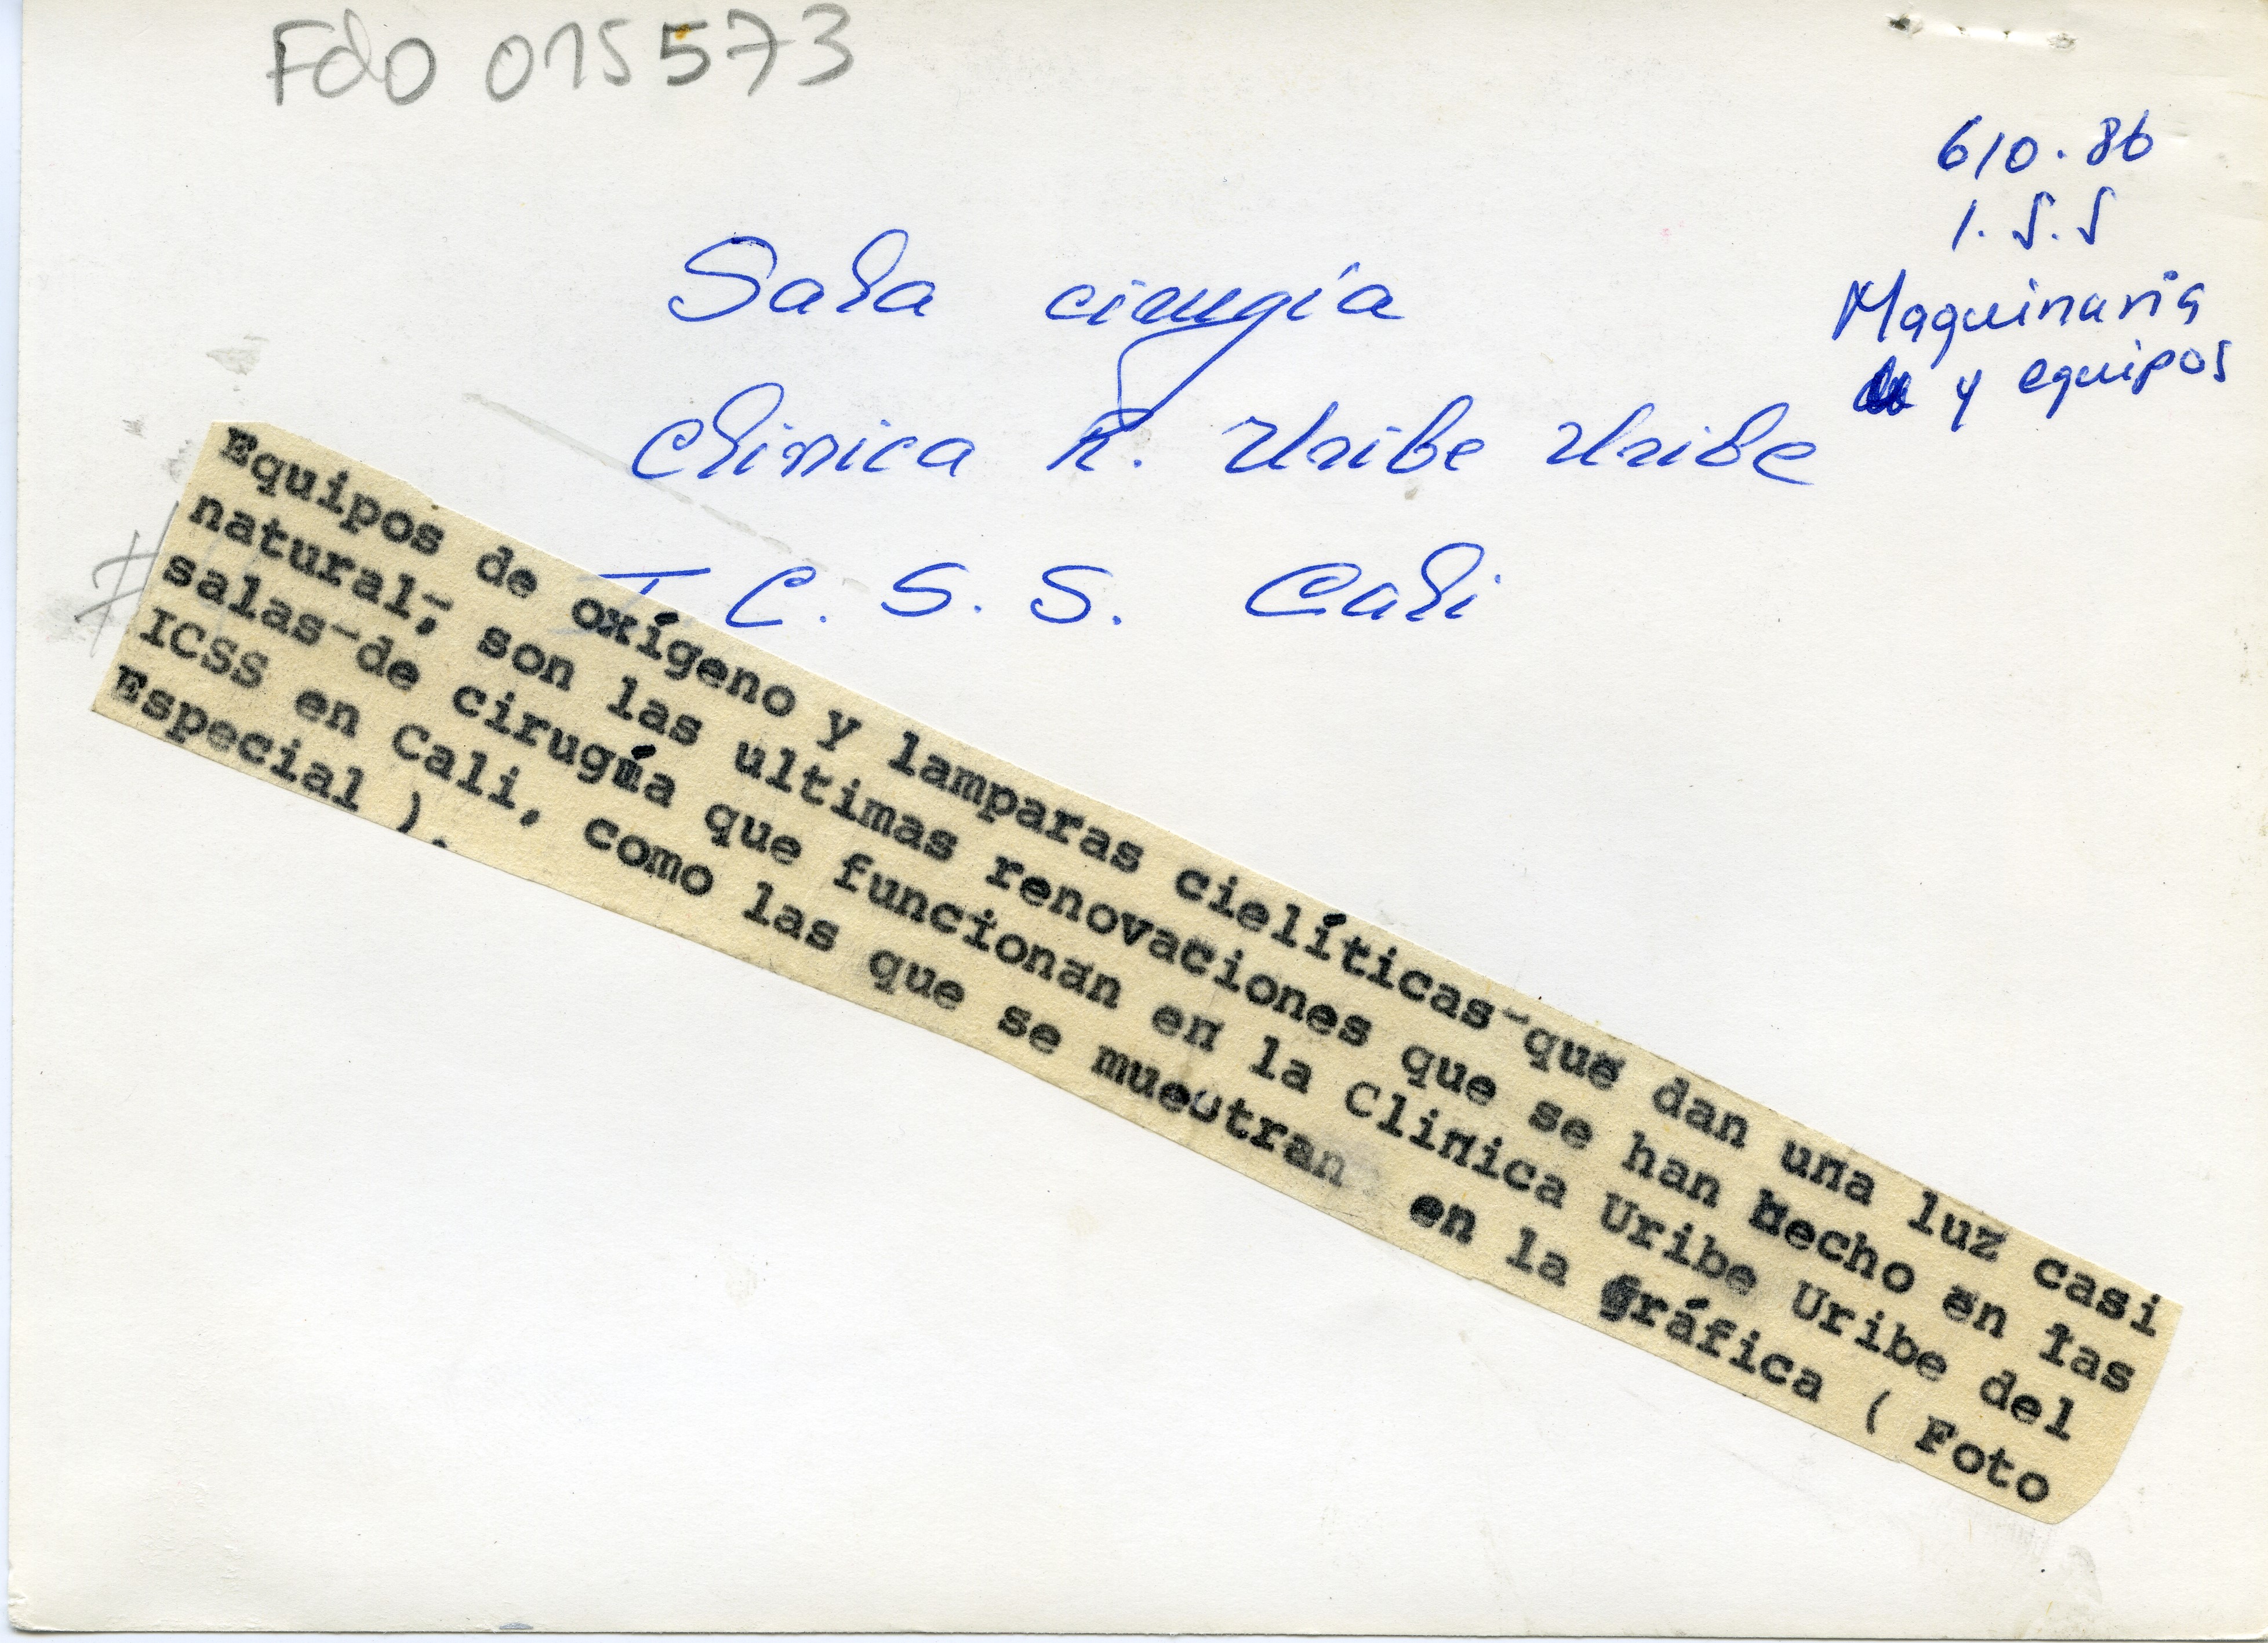 Fdo 015573
610.86
I.S.S
Maquinaria
y equipos
Sala cirugía
Clinica R. Uribe Uribe
I C. S. S. Cali
Equipos de oxígeno y lamparas cielíticas-que dan una luz casi
natural-, son las ultimas renovaciones que se han hecho en las
salas-de cirugía que funcionan en la Clinica Uribe Uribe del
ICSS en Cali, como las que se muestran en la gráfica ( Foto
Especial ).